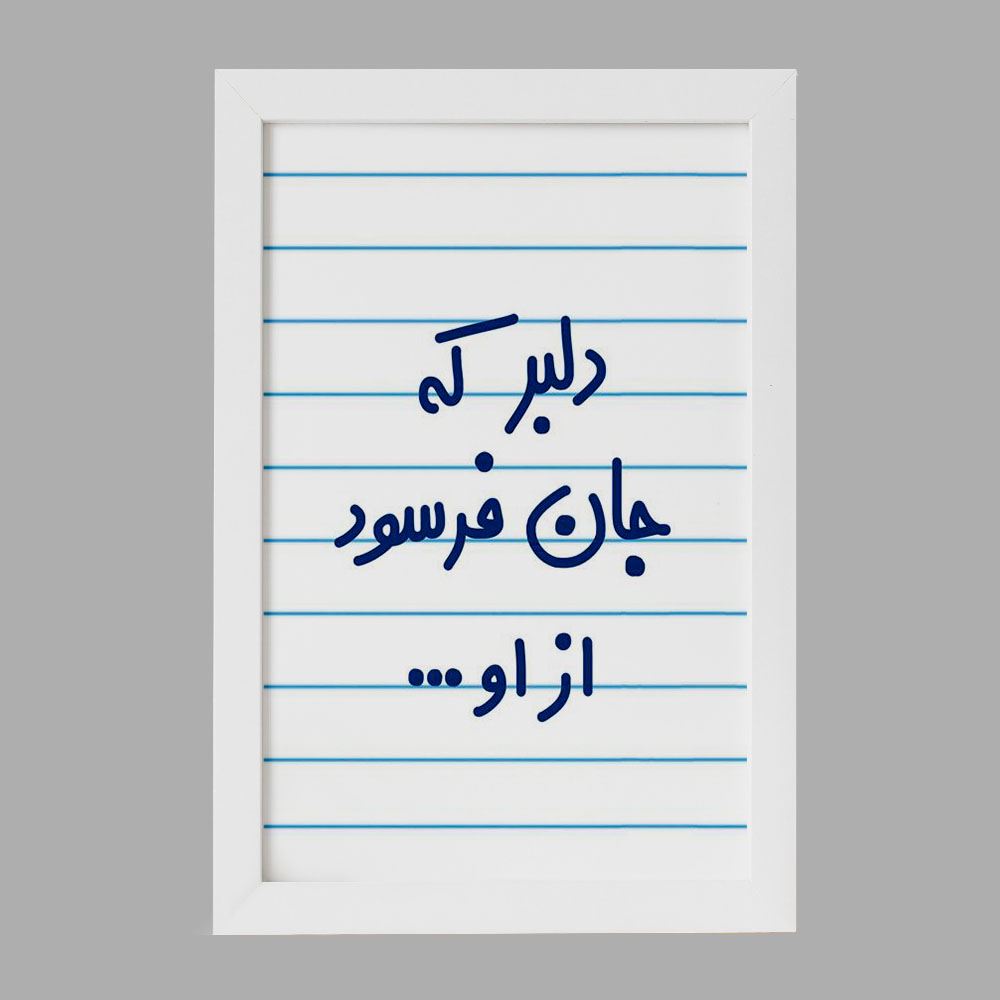 دلبر که
جان فرسود
از او ...